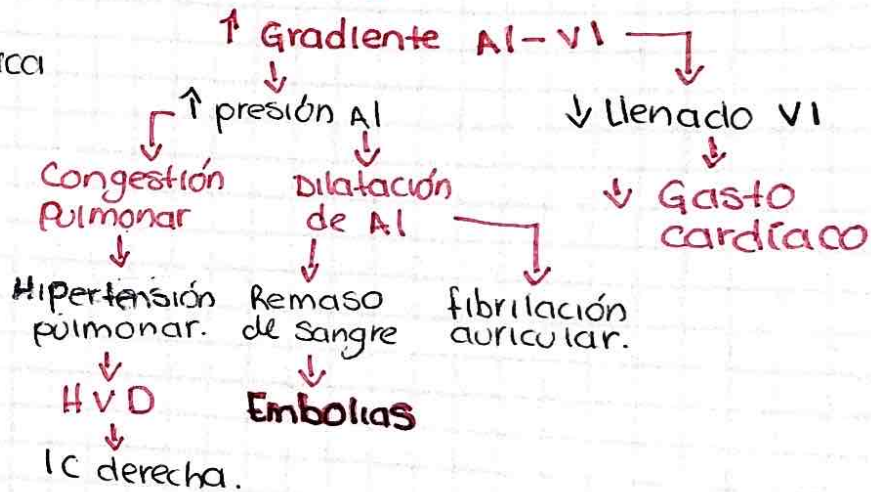 ↑ Gradiente AI-VI
↑ presión AI
↓ Llenado VI
Congestión
Pulmonar
Dilatación
de AI
↓ Gasto
cardíaco
Hipertensión
pulmonar.
Remaso
de sangre
fibrilación
auricular.
HVD
Embolias
IC derecha.